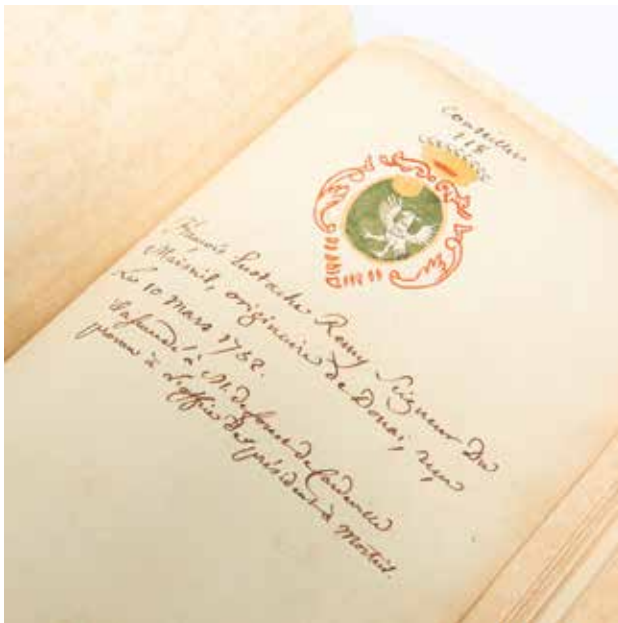 Conseiller
118
François Eustache Remy Seigneur Du
Maisnil, originaire de Douai, reçu
Le 10 mars 1768.
à M. de
pourvu à L'office de président à Mortier.